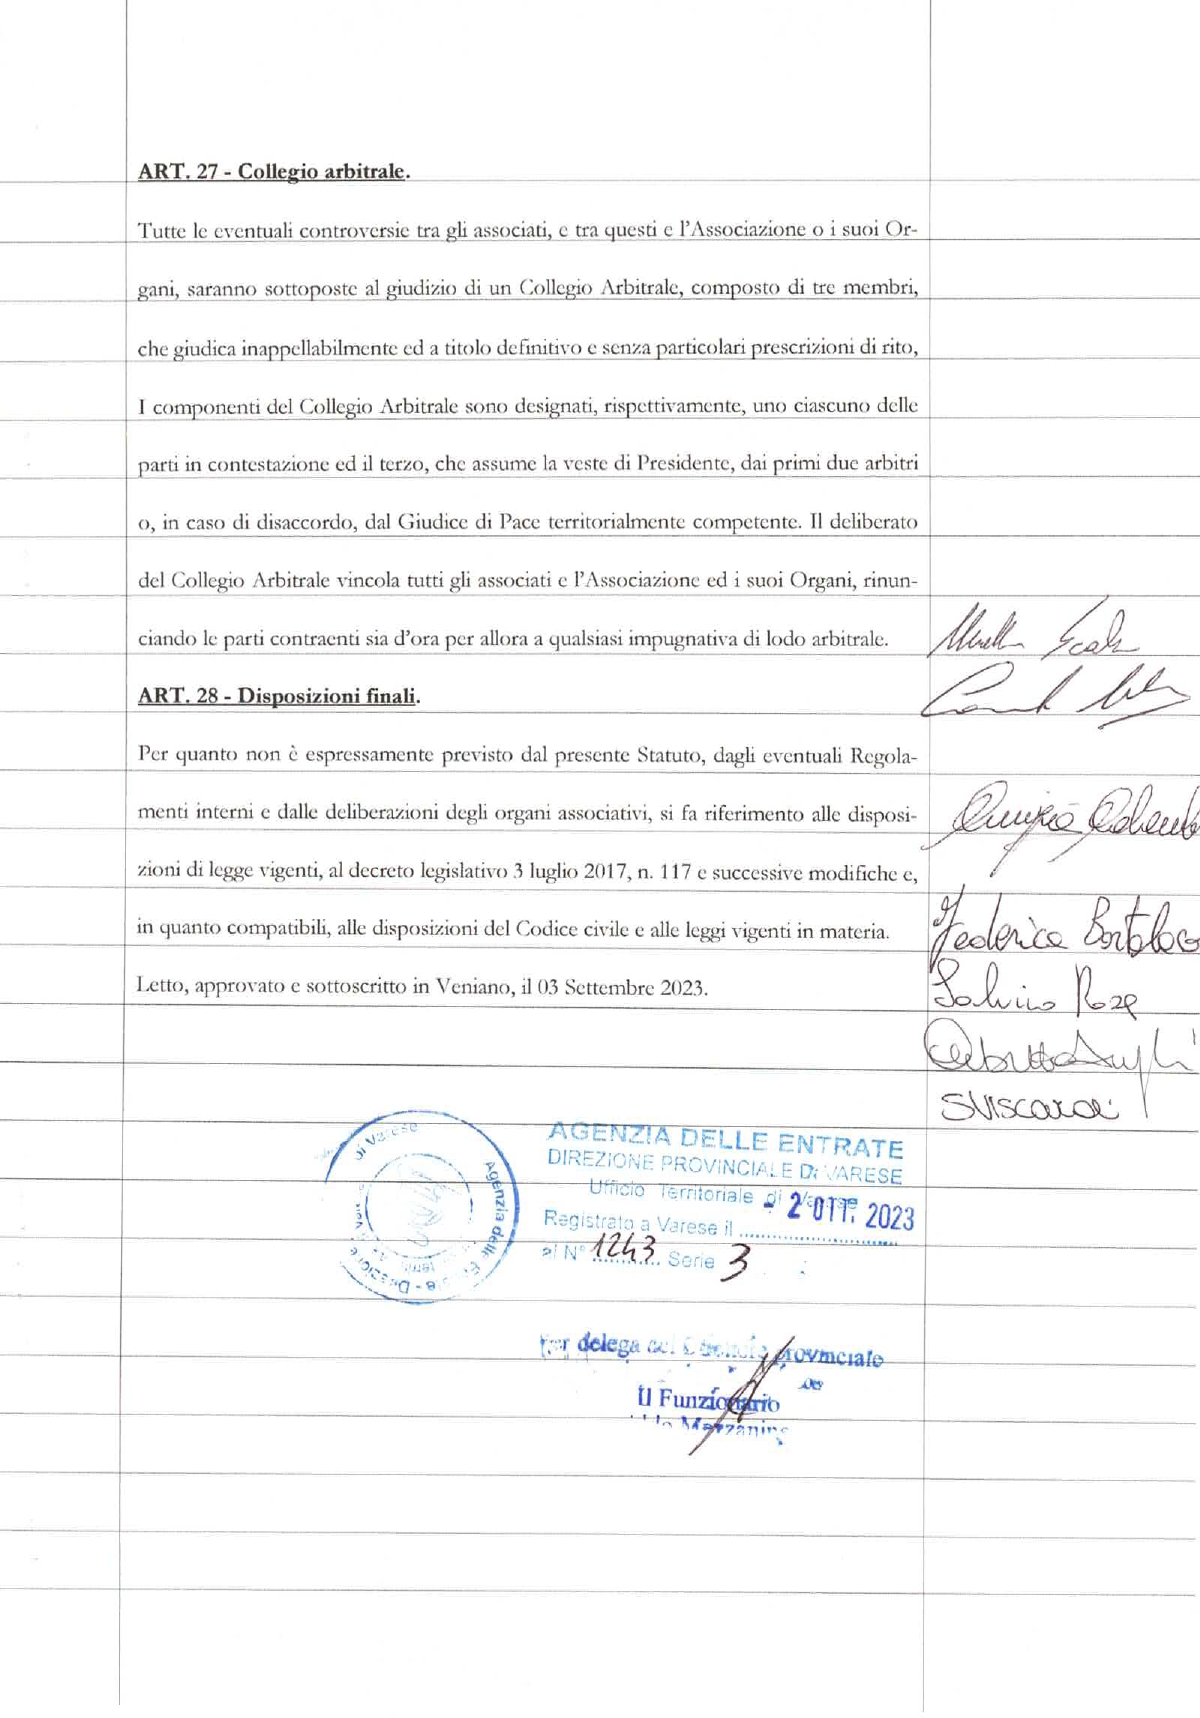 ART. 27 - Collegio arbitrale.
Tutte le eventuali controversie tra gli associati, e tra questi e l'Associazione o i suoi Or-
gani, saranno sottoposte al giudizio di un Collegio Arbitrale, composto di tre membri,
che giudica inappellabilmente ed a titolo definitivo e senza particolari prescrizioni di rito,
I componenti del Collegio Arbitrale sono designati, rispettivamente, uno ciascuno delle
parti in contestazione ed il terzo, che assume la veste di Presidente, dai primi due arbitri
o, in caso di disaccordo, dal Giudice di Pace territorialmente competente. Il deliberato
del Collegio Arbitrale vincola tutti gli associati e l'Associazione ed i suoi Organi, rinun-
ciando le parti contraenti sia d'ora per allora a qualsiasi impugnativa di lodo arbitrale.
ART. 28 - Disposizioni finali.
Per quanto non è espressamente previsto dal presente Statuto, dagli eventuali Regola-
menti interni e dalle deliberazioni degli organi associativi, si fa riferimento alle disposi-
zioni di legge vigenti, al decreto legislativo 3 luglio 2017, n. 117 e successive modifiche e,
in quanto compatibili, alle disposizioni del Codice civile e alle leggi vigenti in materia.
Federica
Letto, approvato e sottoscritto in Veniano, il 03 Settembre 2023.
di Varese
Agenzia delle
AGENZIA DELLE ENTRATE
DIREZIONE PROVINCIALE DI VARESE
Ufficio Territoriale di
Registrato a Varese il - 2 OTT. 2023
al N° 1243 Serie 3
Per delega del provinciale
Il Funzionario